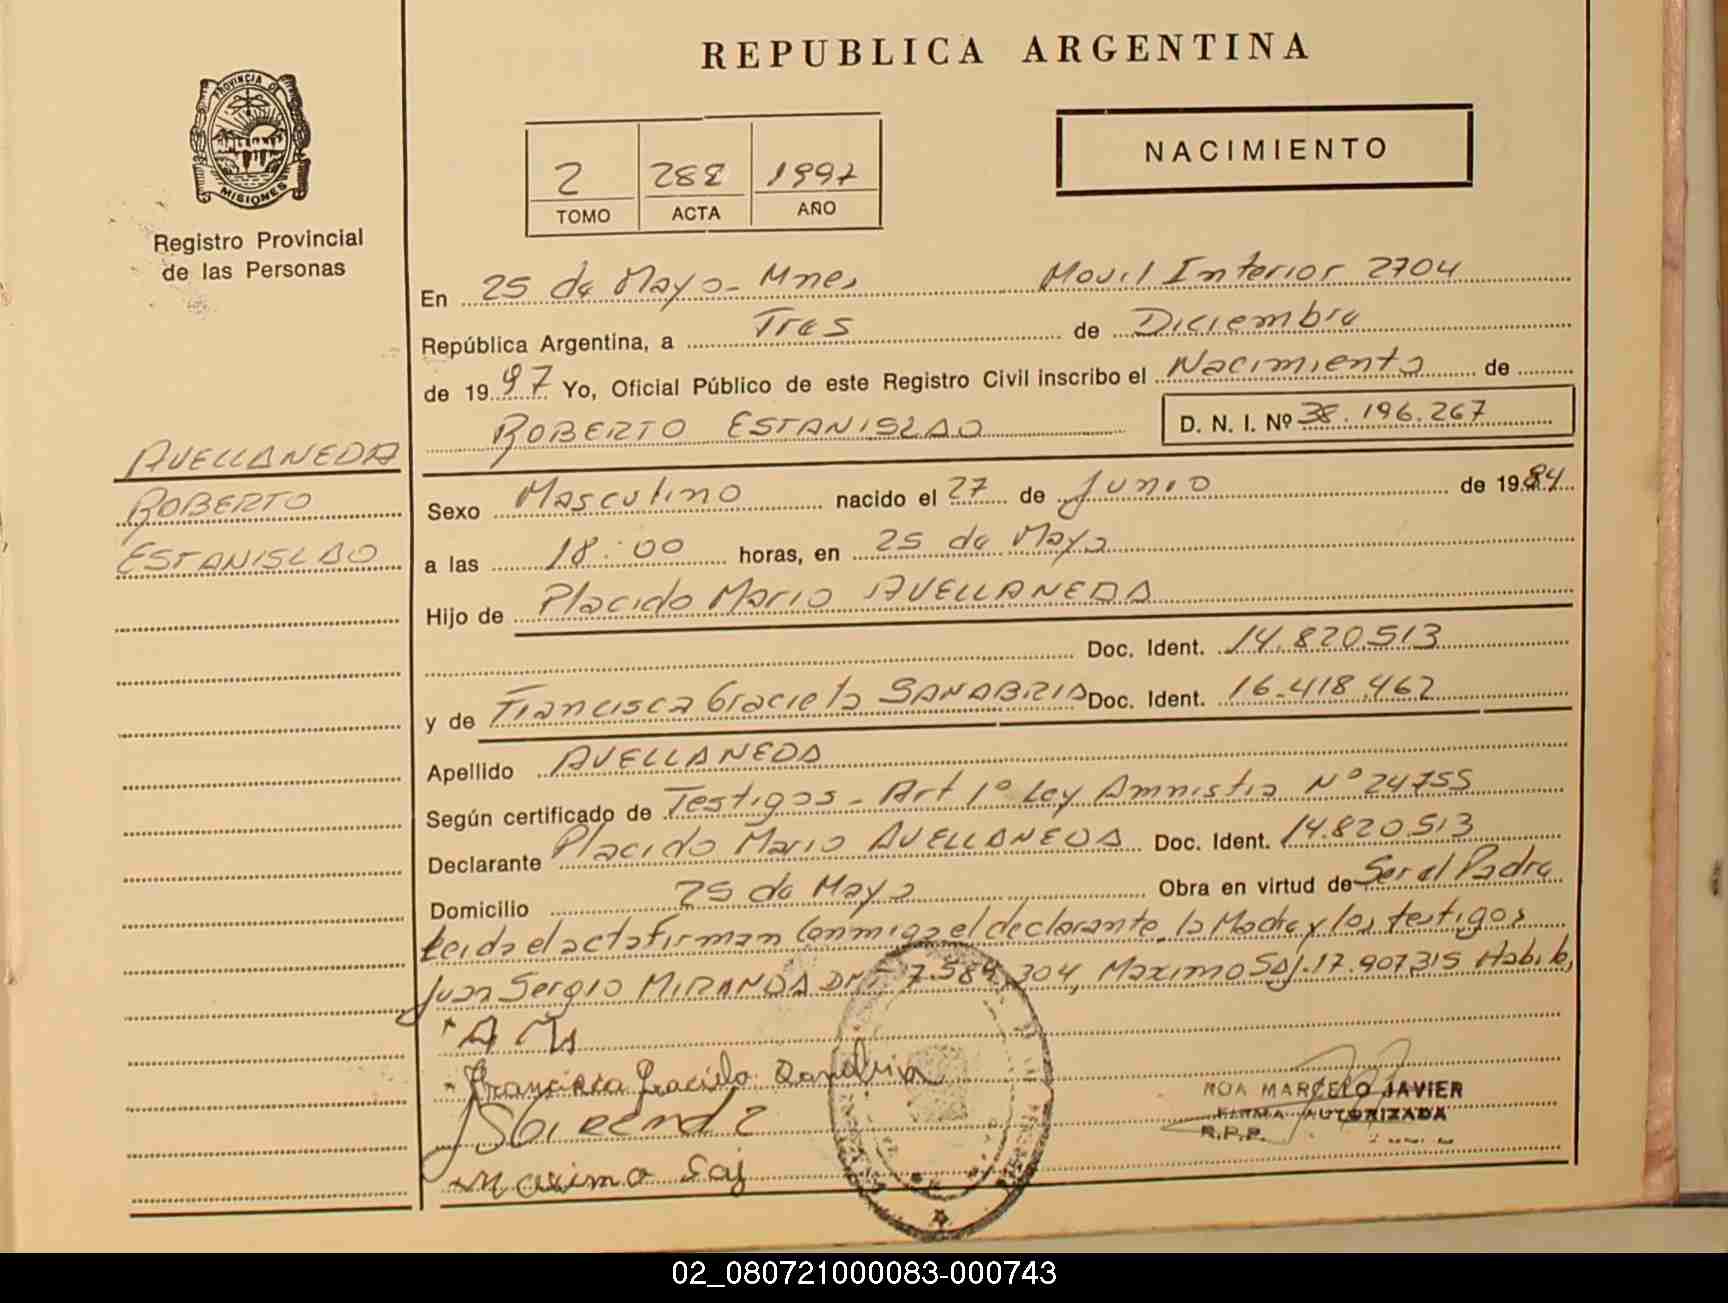 REPUBLICA ARGENTINA
PROVINCIA DE
MISIONES
Registro Provincial
de las Personas
NACIMIENTO
2 282 1997
TOMO ACTA AÑO
En 25 de Mayo - Mnes Movil Interior 2704
República Argentina, a Tres de Diciembre
de 1997 Yo, Oficial Público de este Registro Civil inscribo el Nacimiento de
ROBERTO ESTANISLAO D. N. I. Nº 38.196.267
AVELLANEDA
ROBERTO
ESTANISLAO
Sexo Masculino nacido el 27 de Junio de 1984
a las 18:00 horas, en 25 de Mayo
Hijo de Placido Mario AVELLANEDA
Doc. Ident. 14.820.513
y de Francisca Graciela SANABRIA Doc. Ident. 16.418.462
Apellido AVELLANEDA
Según certificado de Testigos - Art 1º Ley Amnistia Nº 24755
Declarante Placido Mario AVELLANEDA Doc. Ident. 14.820.513
Domicilio 25 de Mayo Obra en virtud de Ser el Padre
Leida el acta firman conmigo el declarante, la Madre y los testigos
Juan Sergio MIRANDA DNI 7.584.304, Maximo SAJ. 17.907315 Habiles
Francisca Graciela Sanabria
Maximo Saj
ROA MARCELO JAVIER
FIRMA AUTORIZADA
R.P.P.
02_080721000083-000743